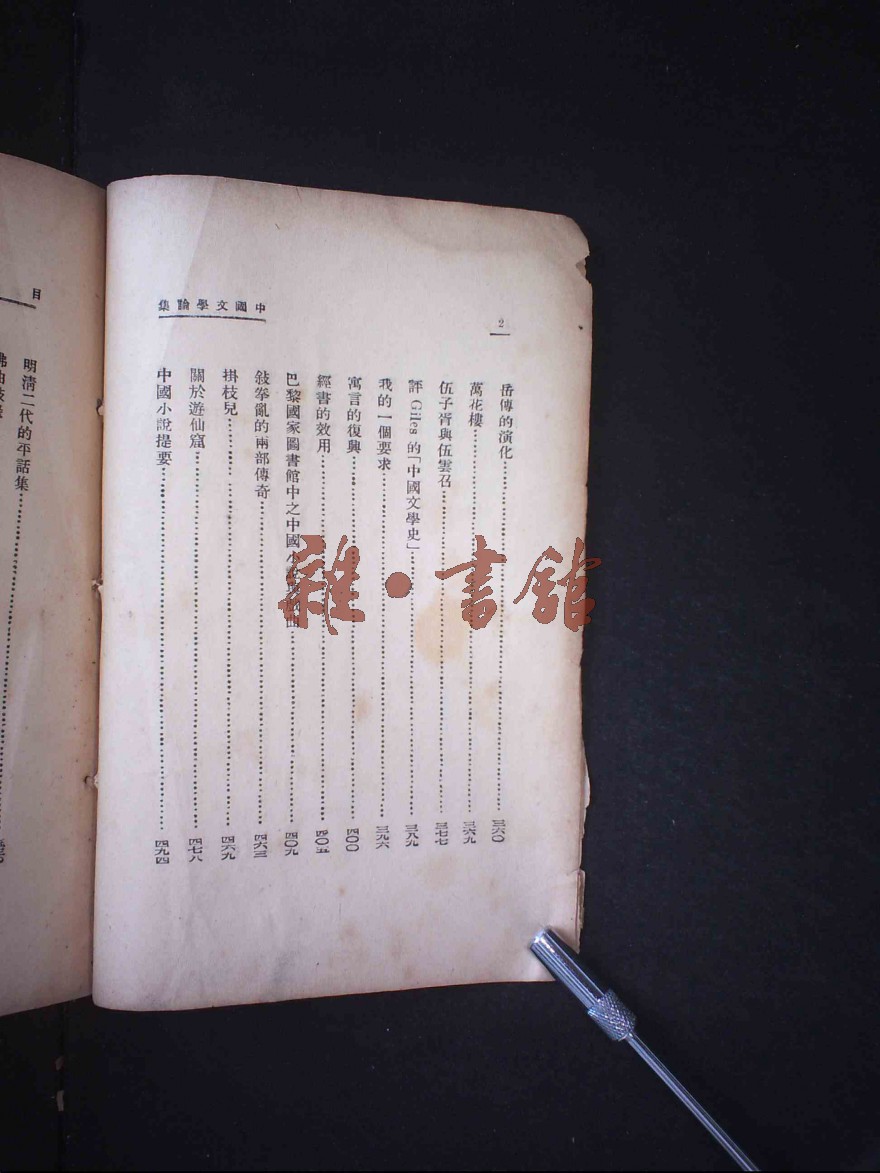 2
中國文學論集
岳傳的演化……三六〇
萬花樓……三六九
伍子胥與伍雲召……三七七
評 Giles 的「中國文學史」……三八九
我的一個要求……三九六
寓言的復興……四〇〇
經書的效用……四〇五
巴黎國家圖書館中之中國小說與戲曲……四〇九
敍拳亂的兩部傳奇……四六三
掛枝兒……四六九
關於遊仙窟……四七八
中國小說提要……四九四
目
明清二代的平話集……
雜·書館